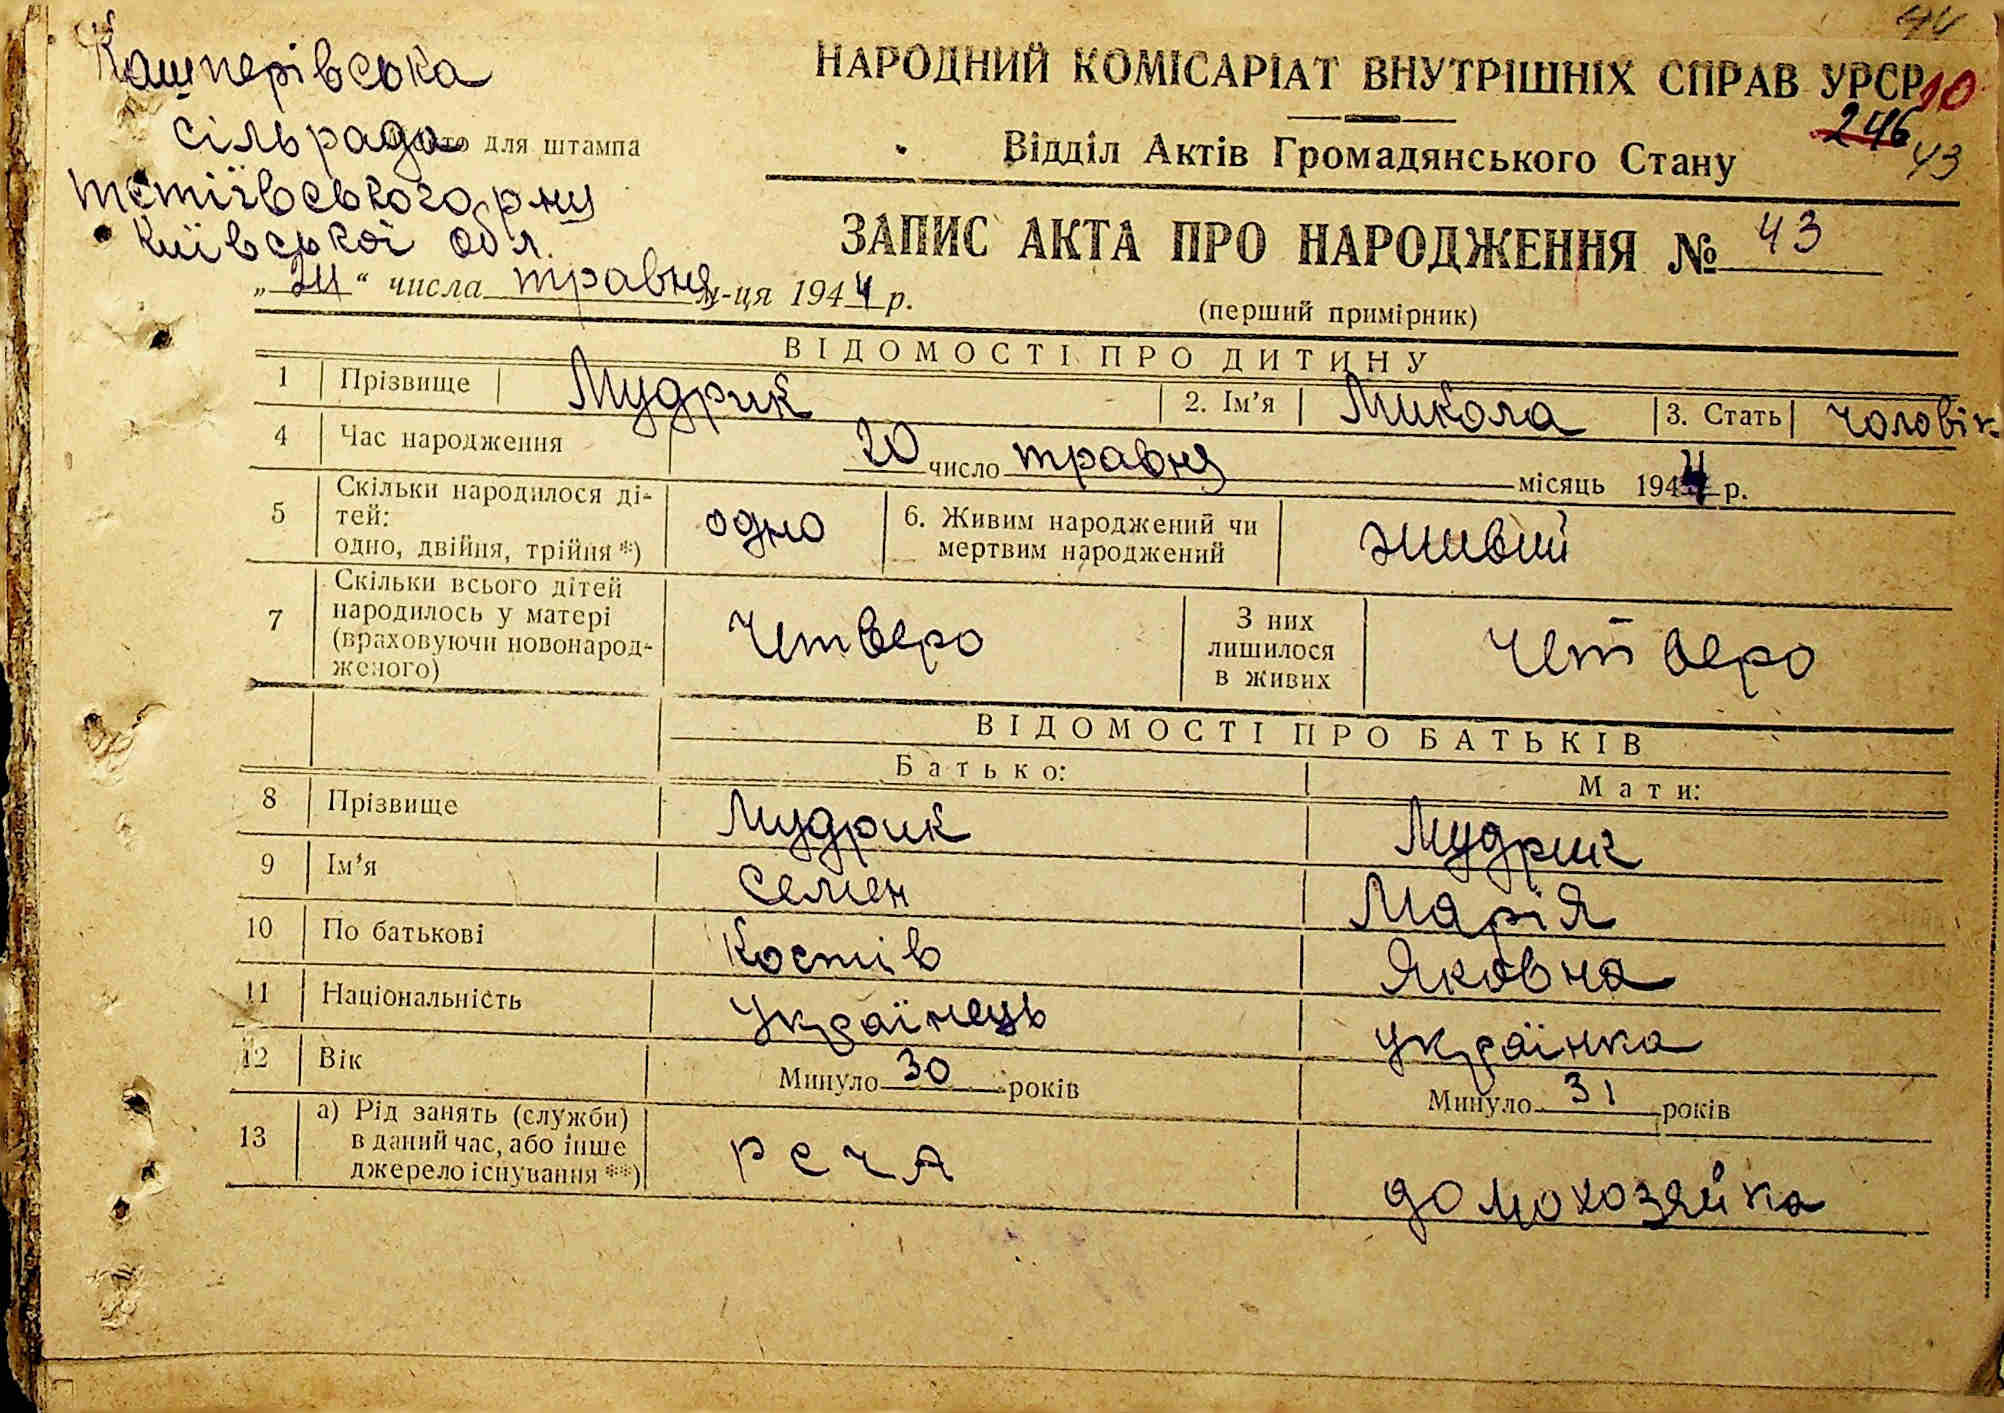 Кашперівська
сільрада
Місто для штампа
Тетіївського р-ну
Київської обл.
НАРОДНИЙ КОМІСАРІАТ ВНУТРІШНІХ СПРАВ УРСР
10
246
43
Відділ Актів Громадянського Стану
ЗАПИС АКТА ПРО НАРОДЖЕННЯ № 43
„24“ числа травня м-ця 1944 р.
(перший примірник)
ВІДОМОСТІ ПРО ДИТИНУ
1 Прізвище Мудрик 2. Ім’я Микола 3. Стать чоловік
4 Час народження 20 число травня місяць 1944 р.
5 Скільки народилося ді-
тей:
одно, двійня, трійня *) одно 6. Живим народжений чи
мертвим народжений живий
7 Скільки всього дітей
народилось у матері
(враховуючи новонарод-
женого) Четверо З них
лишилося
в живих Четверо
ВІДОМОСТІ ПРО БАТЬКІВ
Батько: Мати:
8 Прізвище Мудрик Мудрик
9 Ім’я Семен Марія
10 По батькові Костів Яковна
11 Національність українець українка
12 Вік Минуло 30 років Минуло 31 років
13 а) Рід занять (служби)
в даний час, або інше
джерело існування **) РСЧА домохозяйка